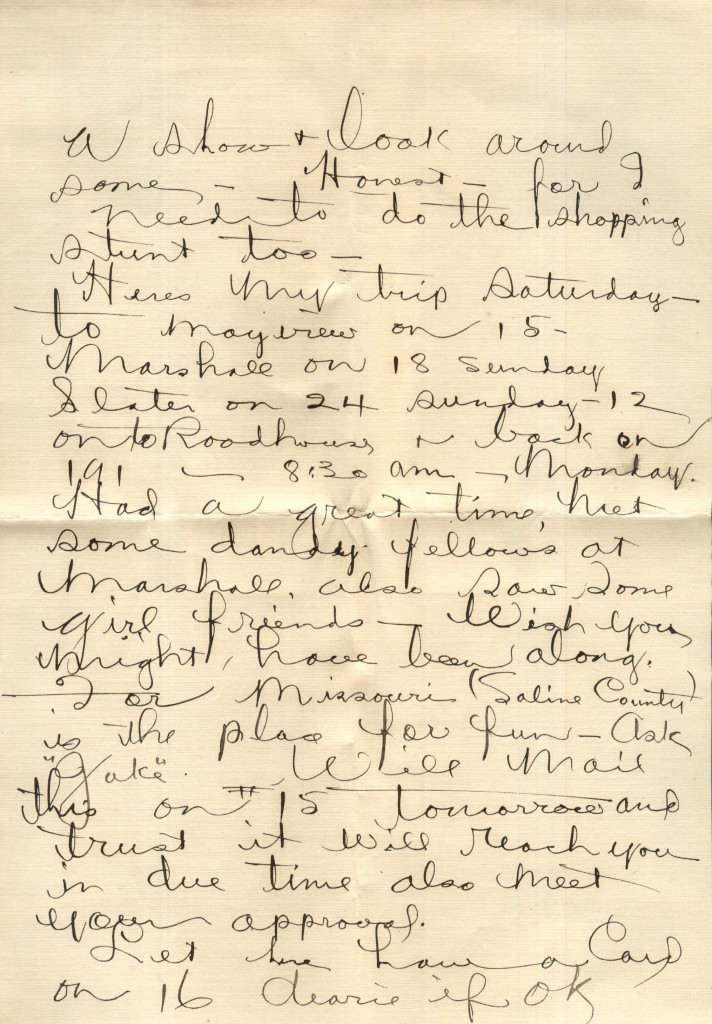 a show + look around
some — Honest — for I
need to do the shopping
stunt too —
Heres my trip Saturday —
to Mayview on 15 -
Marshall on 18 Sunday
Slater on 24 Sunday - 12
on to Roodhouse & back on
191 — 8:30 am —, Monday.
Had a great time, met
some dandy fellows at
Marshall, also saw some
girl friends — Wish you
might, have been along.
For Missouri (Saline County)
is the place for fun — Ask
"Jake". Will Mail
this on #15 tomorrow and
trust it will reach you
in due time also meet
your approval.
Let me have a Card
on 16 dearie if OK